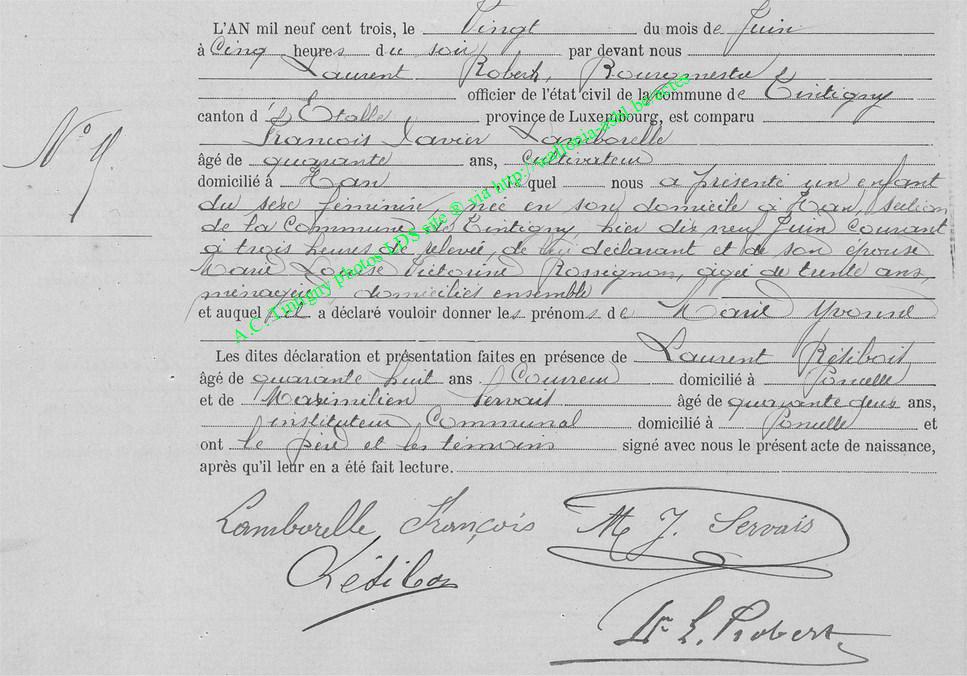 L'AN mil neuf cent trois, le Vingt du mois de Juin
à Cinq heures du soir, par devant nous
Laurent Robert, Bourgmestre
officier de l'état civil de la commune de Tintigny
canton d'Etalle province de Luxembourg, est comparu
François Xavier Lamborelle
âgé de quarante ans, cultivateur
domicilié à Han lequel nous a présenté un enfant
du sexe féminin, née en son domicile à Han, section
de la Commune de Tintigny, hier dix neuf Juin courant
à trois heures de relevée, de lui déclarant et de son épouse
Marie Louise Victorine Rossignon, agée de trente ans,
ménagère domiciliés ensemble
et auquel il a déclaré vouloir donner les prénoms de Marie Yvonne
Les dites déclaration et présentation faites en présence de Laurent
âgé de quarante huit ans Couvreur domicilié à Poncelle
et de Maximilien Servais âgé de quarante deux ans,
instituteur Communal domicilié à Poncelle et
ont le père et les témoins signé avec nous le présent acte de naissance,
après qu'il leur en a été fait lecture.
N° 9
Lamborelle François M J. Servais
L. Robert
A.C. Tintigny photos LDS site ® via http://wallonia-asbl.be/actes